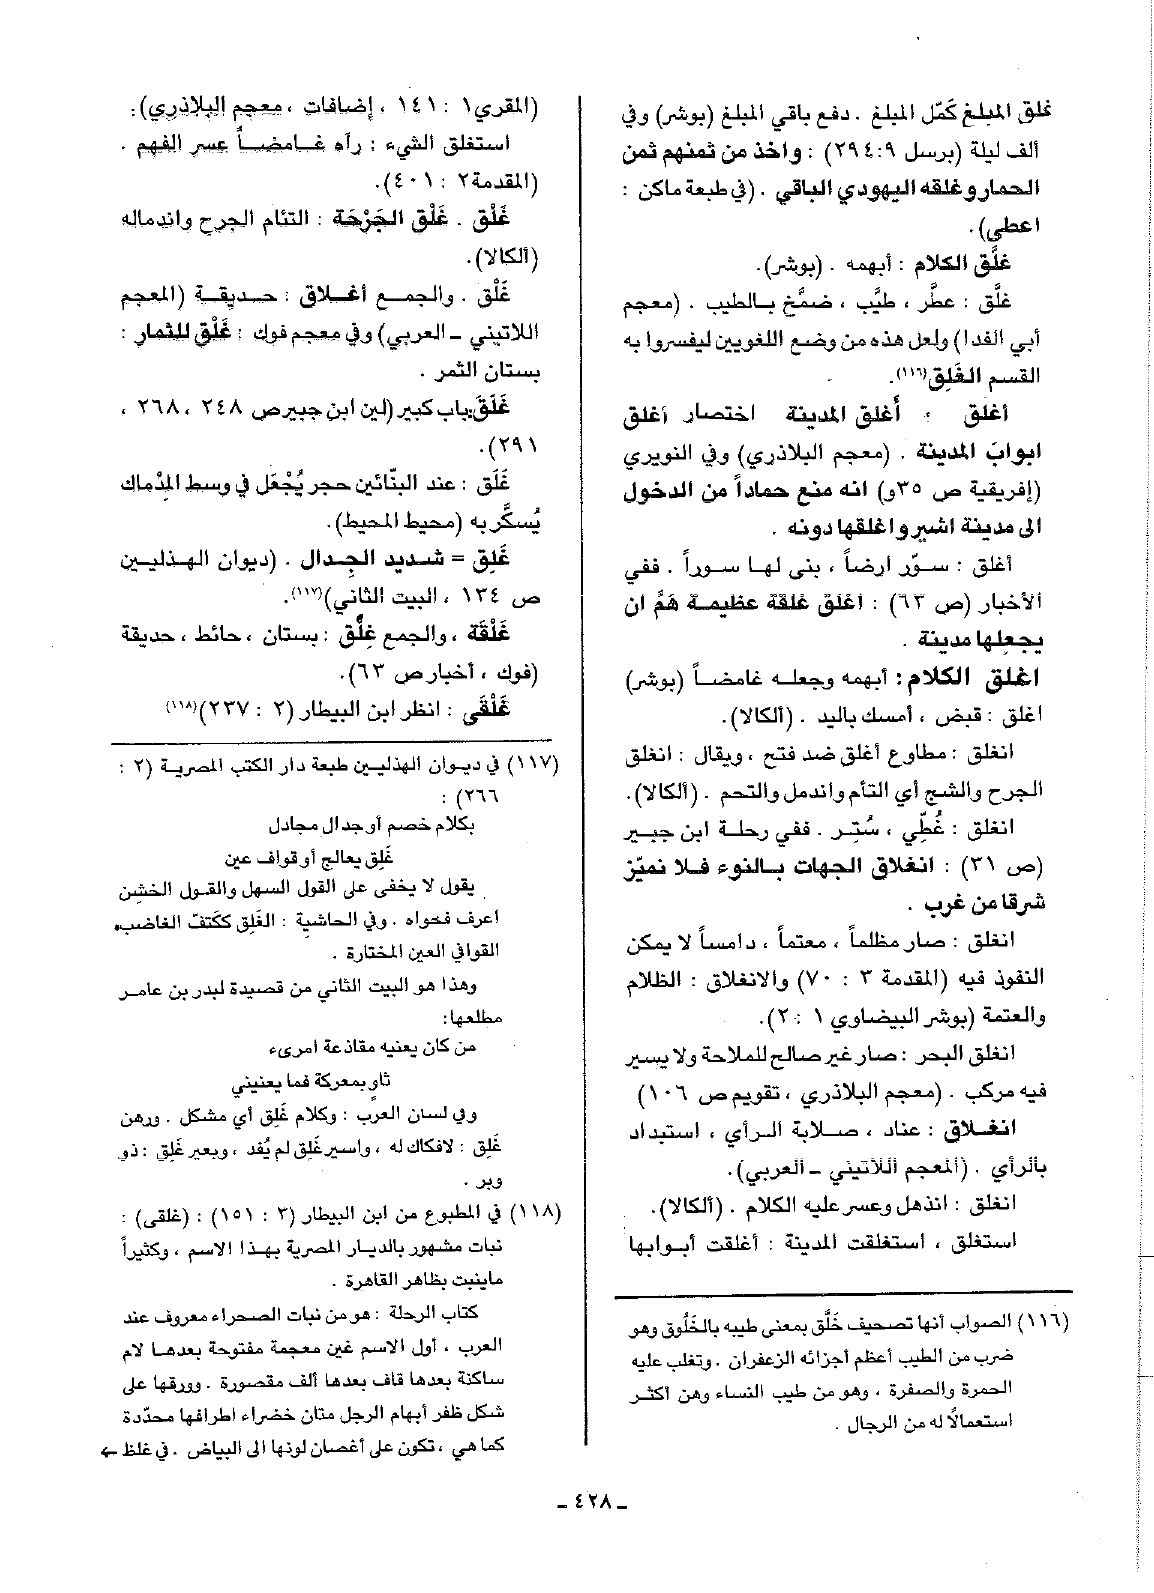 غلق المبلغ كَمّل المبلغ . دفع باقي المبلغ (بوشر) وفي
ألف ليلة (برسل ٩ :٢٩٤) : واخذ من ثمنهم ثمن
الحمار وغلقه اليهودي الباقي . (في طبعة ماكن :
اعطى).
غلَّق الكلام : أبهمه . (بوشر).
غلَّق : عطَّر ، طيَّب ، ضمَّخ بالطيب . (معجم
أبي الفدا) ولعل هذه من وضع اللغويين ليفسروا به
القسم الغَلِق(١١٦).
أغلق : أَغلق المدينة اختصار أغلق
ابوابَ المدينة . (معجم البلاذري) وفي النويري
(إفريقية ص ٣٥و) انه منع حماداً من الدخول
الى مدينة اشير واغلقها دونه .
أغلق : سوّر ارضاً ، بنى لها سوراً . ففي
الأخبار (ص ٦٣) : أغلق غلقة عظيمة هَمَّ ان
يجعلها مدينة .
اغلق الكلام : أبهمه وجعله غامضاً (بوشر)
اغلق : قبض ، أمسك باليد . (ألكالا).
انغلق : مطاوع أغلق ضد فتح ، ويقال : انغلق
الجرح والشج أي التأم واندمل والتحم . (ألكالا).
انغلق : غُطِّي ، سُتِر . ففي رحلة ابن جبير
(ص ٣١) : انغلاق الجهات بالنوء فلا نميّز
شرقا من غرب .
انغلق : صار مظلماً ، معتماً ، دامساً لا يمكن
النفوذ فيه (المقدمة ٣ : ٧٠) والانغلاق : الظلام
والعتمة (بوشر البيضاوي ١ : ٢).
انغلق البحر : صار غير صالح للملاحة ولا يسير
فيه مركب . (معجم البلاذري ، تقويم ص ١٠٦)
انغلاق : عناد ، صلابة الرأي ، استبداد
بالرأي . (المعجم اللاتيني - العربي).
انغلق : انذهل وعسر عليه الكلام . (ألكالا).
استغلق ، استغلقت المدينة : أغلقت أبوابها
(١١٦) الصواب أنها تصحيف خَلَّق بمعنى طيبه بالخَلُوق وهو
ضرب من الطيب أعظم أجزائه الزعفران . وتغلب عليه
الحمرة والصفرة ، وهو من طيب النساء وهن أكثر
استعمالًا له من الرجال .
(المقري١ : ١٤١ ، إضافات ، معجم البلاذري).
استغلق الشيء : رآه غامضاً عسر الفهم .
(المقدمة٢ : ٤٠١).
غَلْق . غَلْق الجَرْحَة : التئام الجرح واندماله
(ألكالا).
غَلْق . والجمع أغلاق : حديقة (المعجم
اللاتيني - العربي) وفي معجم فوك : غَلْق للثمار :
بستان الثمر .
غَلَق: باب كبير (لين ابن جبيرص ٢٤٨ ، ٢٦٨ ،
٢٩١).
غَلَق : عند البنّائين حجر يُجْعَل في وسط المِدْماك
يُسكَّر به (محيط المحيط).
غَلِق = شديد الجِدال . (ديوان الهذليين
ص ١٣٤ ، البيت الثاني)(١١٧).
غَلْقَة ، والجمع غِلَق : بستان ، حائط ، حديقة
(فوك ، أخبار ص ٦٣).
غَلْقَى : انظر ابن البيطار (٢ : ٢٣٧)(١١٨)
(١١٧) في ديوان الهذليين طبعة دار الكتب المصرية (٢ :
٢٦٦) :
بكلام خصم أو جدال مجادل
غَلِق يعالج أو قواف عين
يقول لا يخفى على القول السهل والقول الخشن
أعرف فحواه . وفي الحاشية : الغَلِق ككتف الغاضب.
القوافي العين المختارة .
وهذا هو البيت الثاني من قصيدة لبدر بن عامر
مطلعها:
من كان يعنيه مقاذعة امرىء
ثاوٍ بمعركة فما يعنيني
وفي لسان العرب : وكلام غَلِق أي مشكل . ورهن
غَلِق : لافكاك له ، واسير غَلِق لم يُفد ، وبعير غَلِق : ذو
وبر .
(١١٨) في المطبوع من ابن البيطار (٣ : ١٥١) : (غلقى) :
نبات مشهور بالديار المصرية بهذا الاسم ، وكثيراً
ماينبت بظاهر القاهرة .
كتاب الرحلة : هو من نبات الصحراء معروف عند
العرب ، أول الاسم غين معجمة مفتوحة بعدها لام
ساكنة بعدها قاف بعدها ألف مقصورة . وورقها على
شكل ظفر أبهام الرجل متان خضراء اطرافها محدّدة
كما هي ، تكون على أغصان لونها الى البياض . في غلظ ←
- ٤٢٨ -